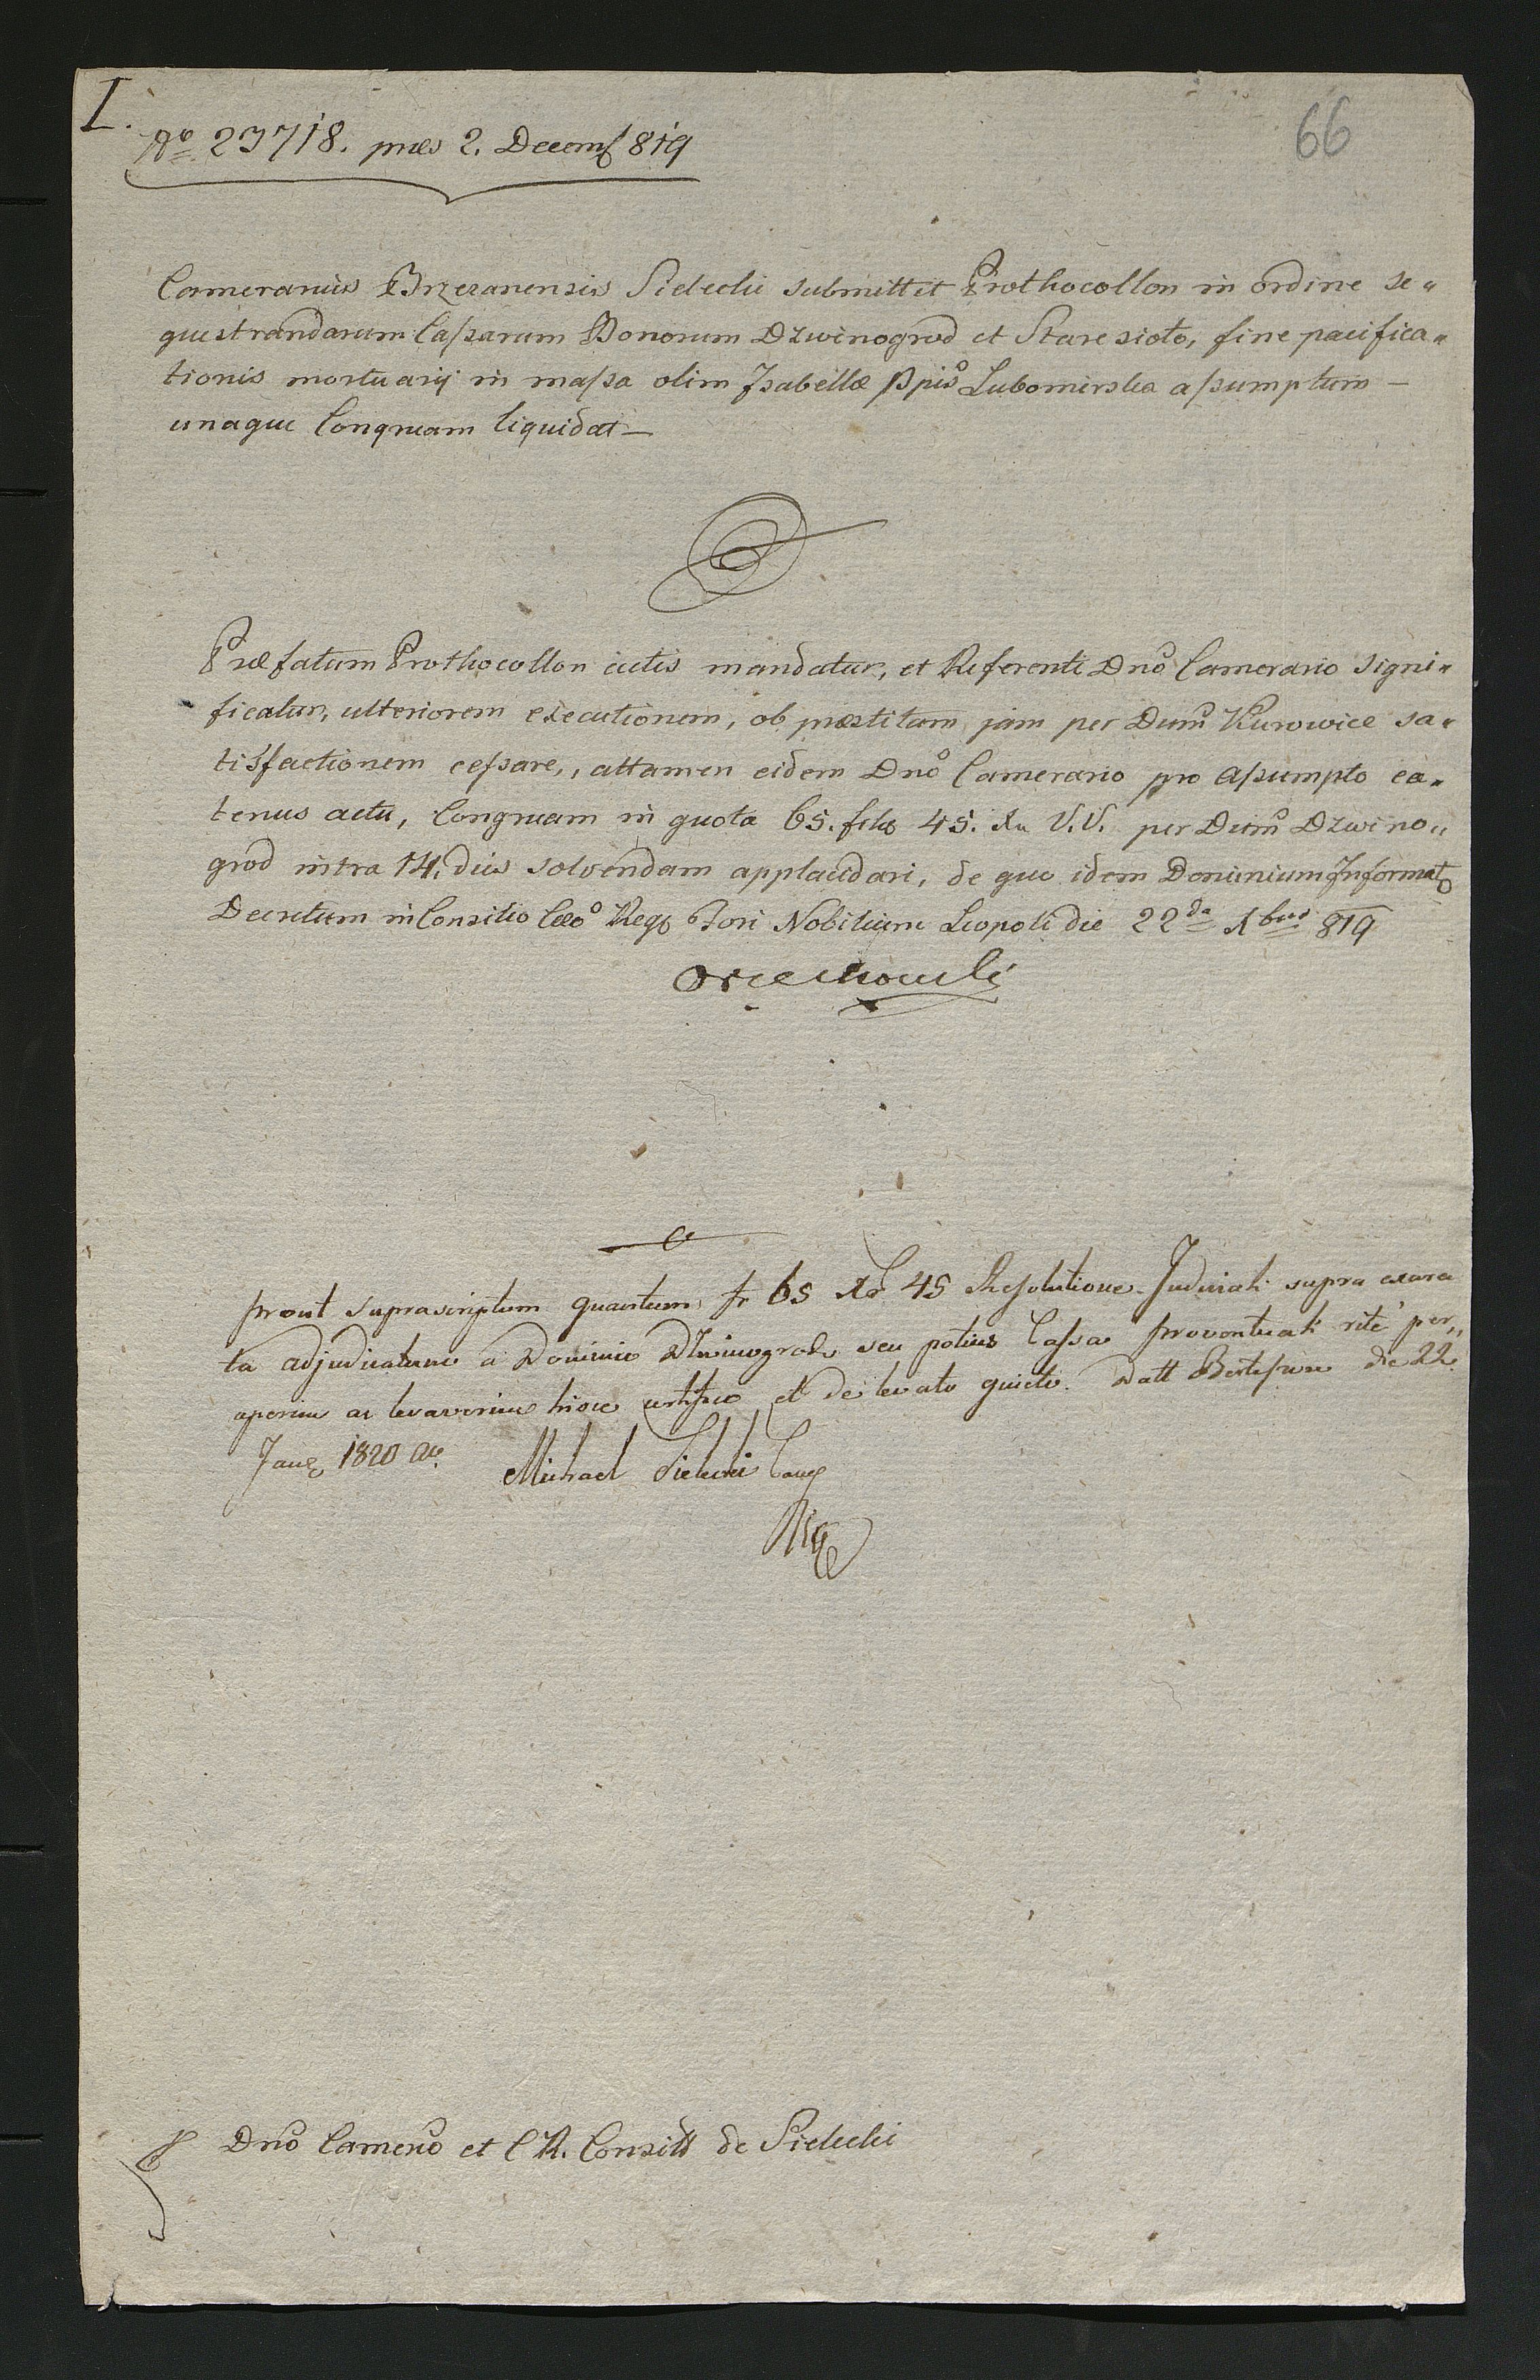 I.
66
No 23718. præs 2. Decemb 819
Camerarius Brzezanensis Sielecki submittit Prothocollon in ordine se„
questrandarum Cassarum Bonorum Dzwinogrod et Stare sioło, fine pacifica„
tionis mortuarij in massa olim Isabellæ Ppis Lubomirska assumptum —
unaque Congruam liquidat —
Præfatum Prothocollon actis mandatur, et Referenti Dno Camerario signi„
ficatur, ulteriorem executionem, ob præstitam jam per Dnium Kurowice sa„
tisfactionem cessare, attamen eidem Dno Camerario pro assumpto ea„
tenus actu, Congruam in quota 65. 45. V.V. per Dnium Dzwino„
grod intra 14. dies solvendam applacidari, de quo idem Dominium Informat
Decretum in Consilio Cæo Reg Fori Nobilium Leopoli die 22da Xbris 819
prout suprascriptum quantum fr 65 Xr 45 Resolutione Judiciali supra exara
ta adjudicatum a Dominio Dzwinogrod seu potius Cassa proventuali rite per„
ceperim ac levaverim hisce certifico et de levato quieto. Datt die 22
Jan 1820 ao.
Michael Sielecki Cam
Dno Camero et C R. Consill de Sielecki